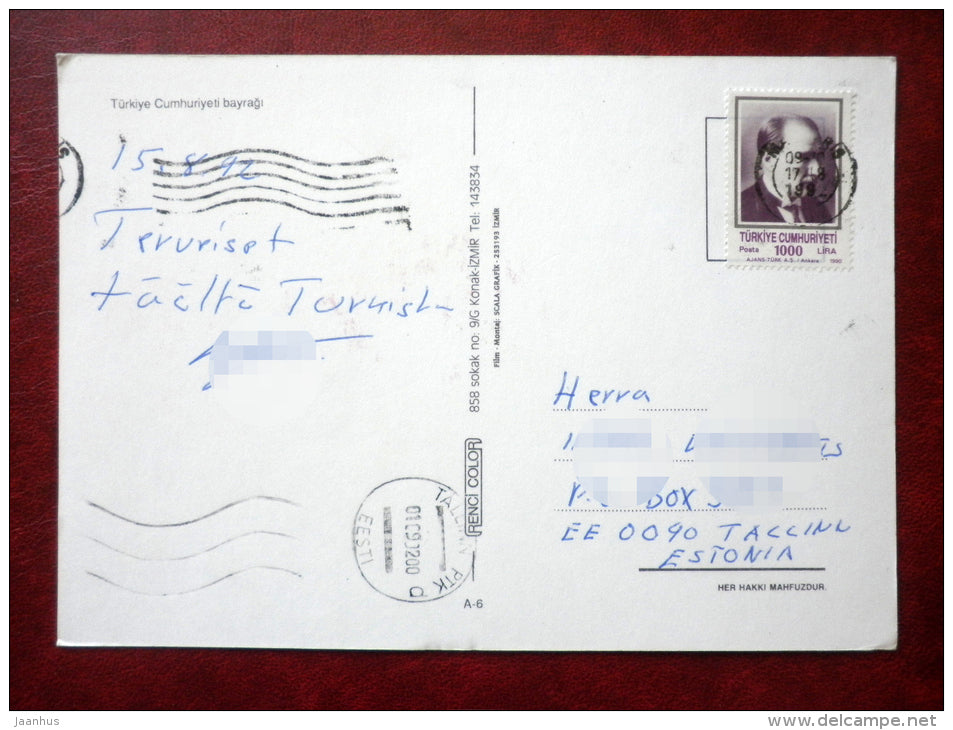 Türkiye Cumhuriyeti bayrağı
15.8 92
Terveiset
täältä Turkista
858 sokak no: 9/G Konak-İZMİR Tel: 143834
Film - Montaj: SCALA GRAFİK - 253193 İZMİR
RENCİ COLOR
A-6
09
17 8
199
TÜRKİYE CUMHURİYETİ
Posta 1000 LİRA
AJANS-TÜRK A.Ş. / Ankara 1990
Herra
BOX
EE 0090 TALLINN
ESTONIA
HER HAKKI MAHFUZDUR.
TALLINN PTK
01090200
EESTI
jaanhus
www.delcampe.net